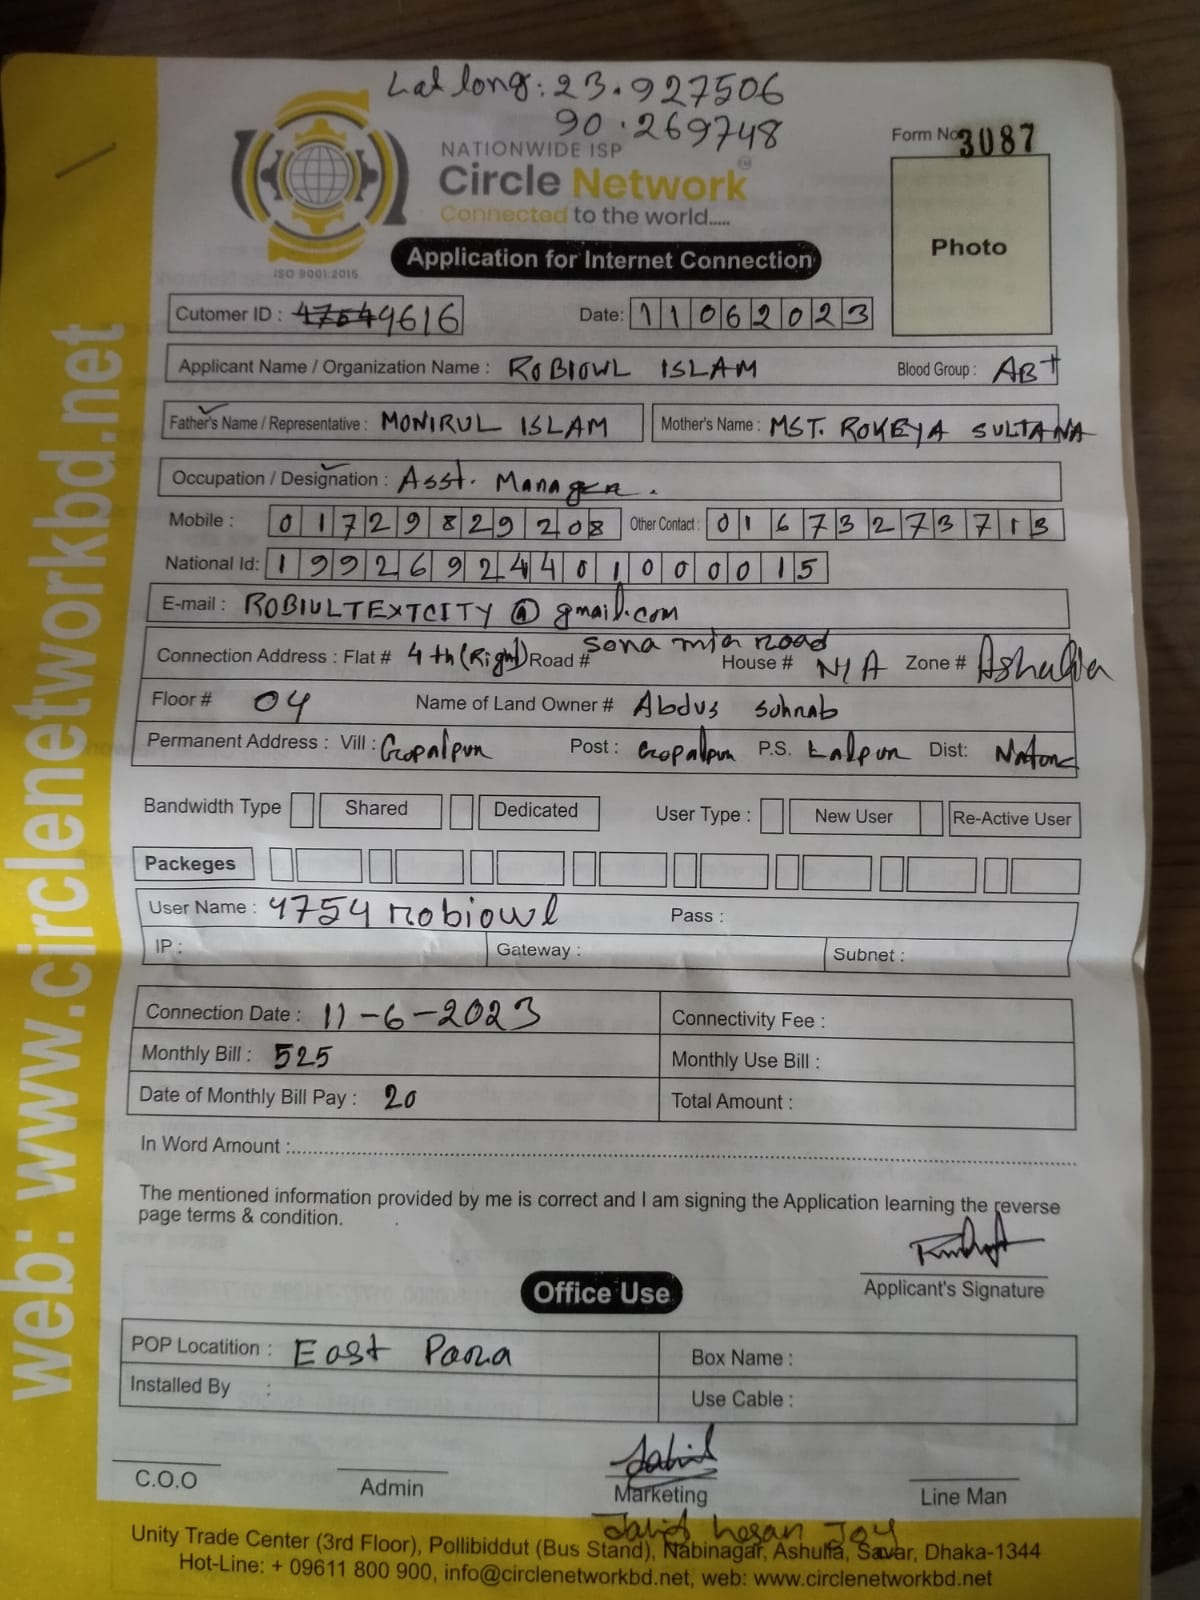 Lat long: 23.927506
90.269748
NATIONWIDE ISP
Circle Network
Connected to the world.....
ISO 9001:2015
Form No 3087
Photo
Application for Internet Connection
Cutomer ID : 9616
Date: 11062023
Applicant Name / Organization Name : ROBIOWL ISLAM Blood Group : AB+
Father's Name / Representative : MONIRUL ISLAM Mother's Name : MST. ROKEYA SULTANA
Occupation / Designation : Asst. Manager.
Mobile : 01729829208 Other Contact : 01673273713
National Id: 19926924401000015
E-mail : ROBIULTEXTCITY @ gmail.com
Connection Address : Flat # 4th (Right) Road # sona mia road House # N/A Zone # Ashulia
Floor # 04 Name of Land Owner # Abdus Sohrab
Permanent Address : Vill : Gopalpur Post : Gopalpur P.S. Lalpur Dist: Natore
Bandwidth Type Shared Dedicated User Type : New User Re-Active User
Packeges
User Name : 4754 robiowl Pass :
IP : Gateway : Subnet :
Connection Date : 11-6-2023 Connectivity Fee :
Monthly Bill : 525 Monthly Use Bill :
Date of Monthly Bill Pay : 20 Total Amount :
In Word Amount :
The mentioned information provided by me is correct and I am signing the Application learning the reverse
page terms & condition.
Applicant's Signature
Office Use
POP Locatition : East Para Box Name :
Installed By : Use Cable :
C.O.O Admin Marketing Line Man
hasan Joy
Unity Trade Center (3rd Floor), Pollibiddut (Bus Stand), Nabinagar, Ashulia, Savar, Dhaka-1344
Hot-Line: + 09611 800 900, info@circlenetworkbd.net, web: www.circlenetworkbd.net
web: www.circlenetworkbd.net